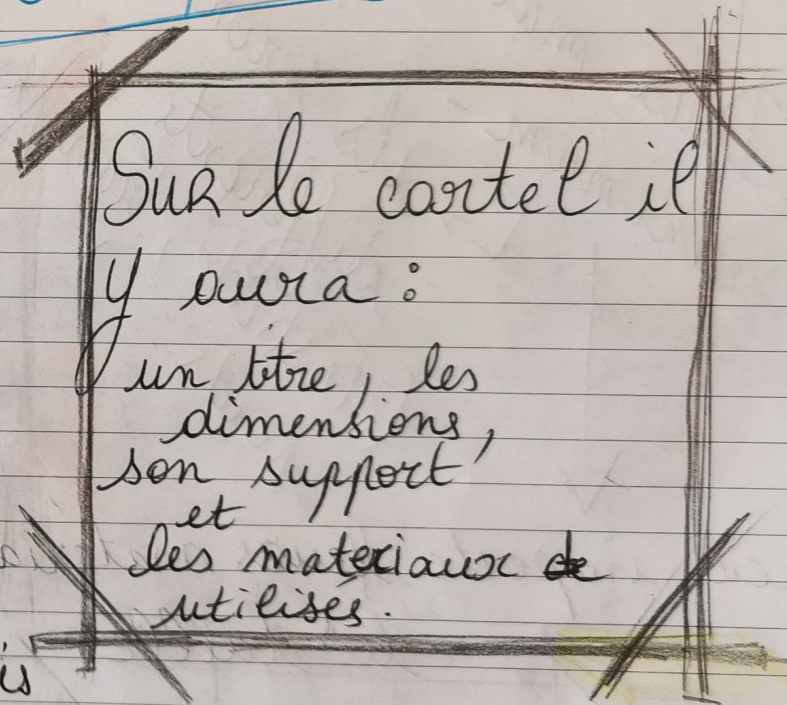 Sur le cartel il
y aura :
un titre, les
dimensions,
son support
et
les materiaux
utilisés.
is